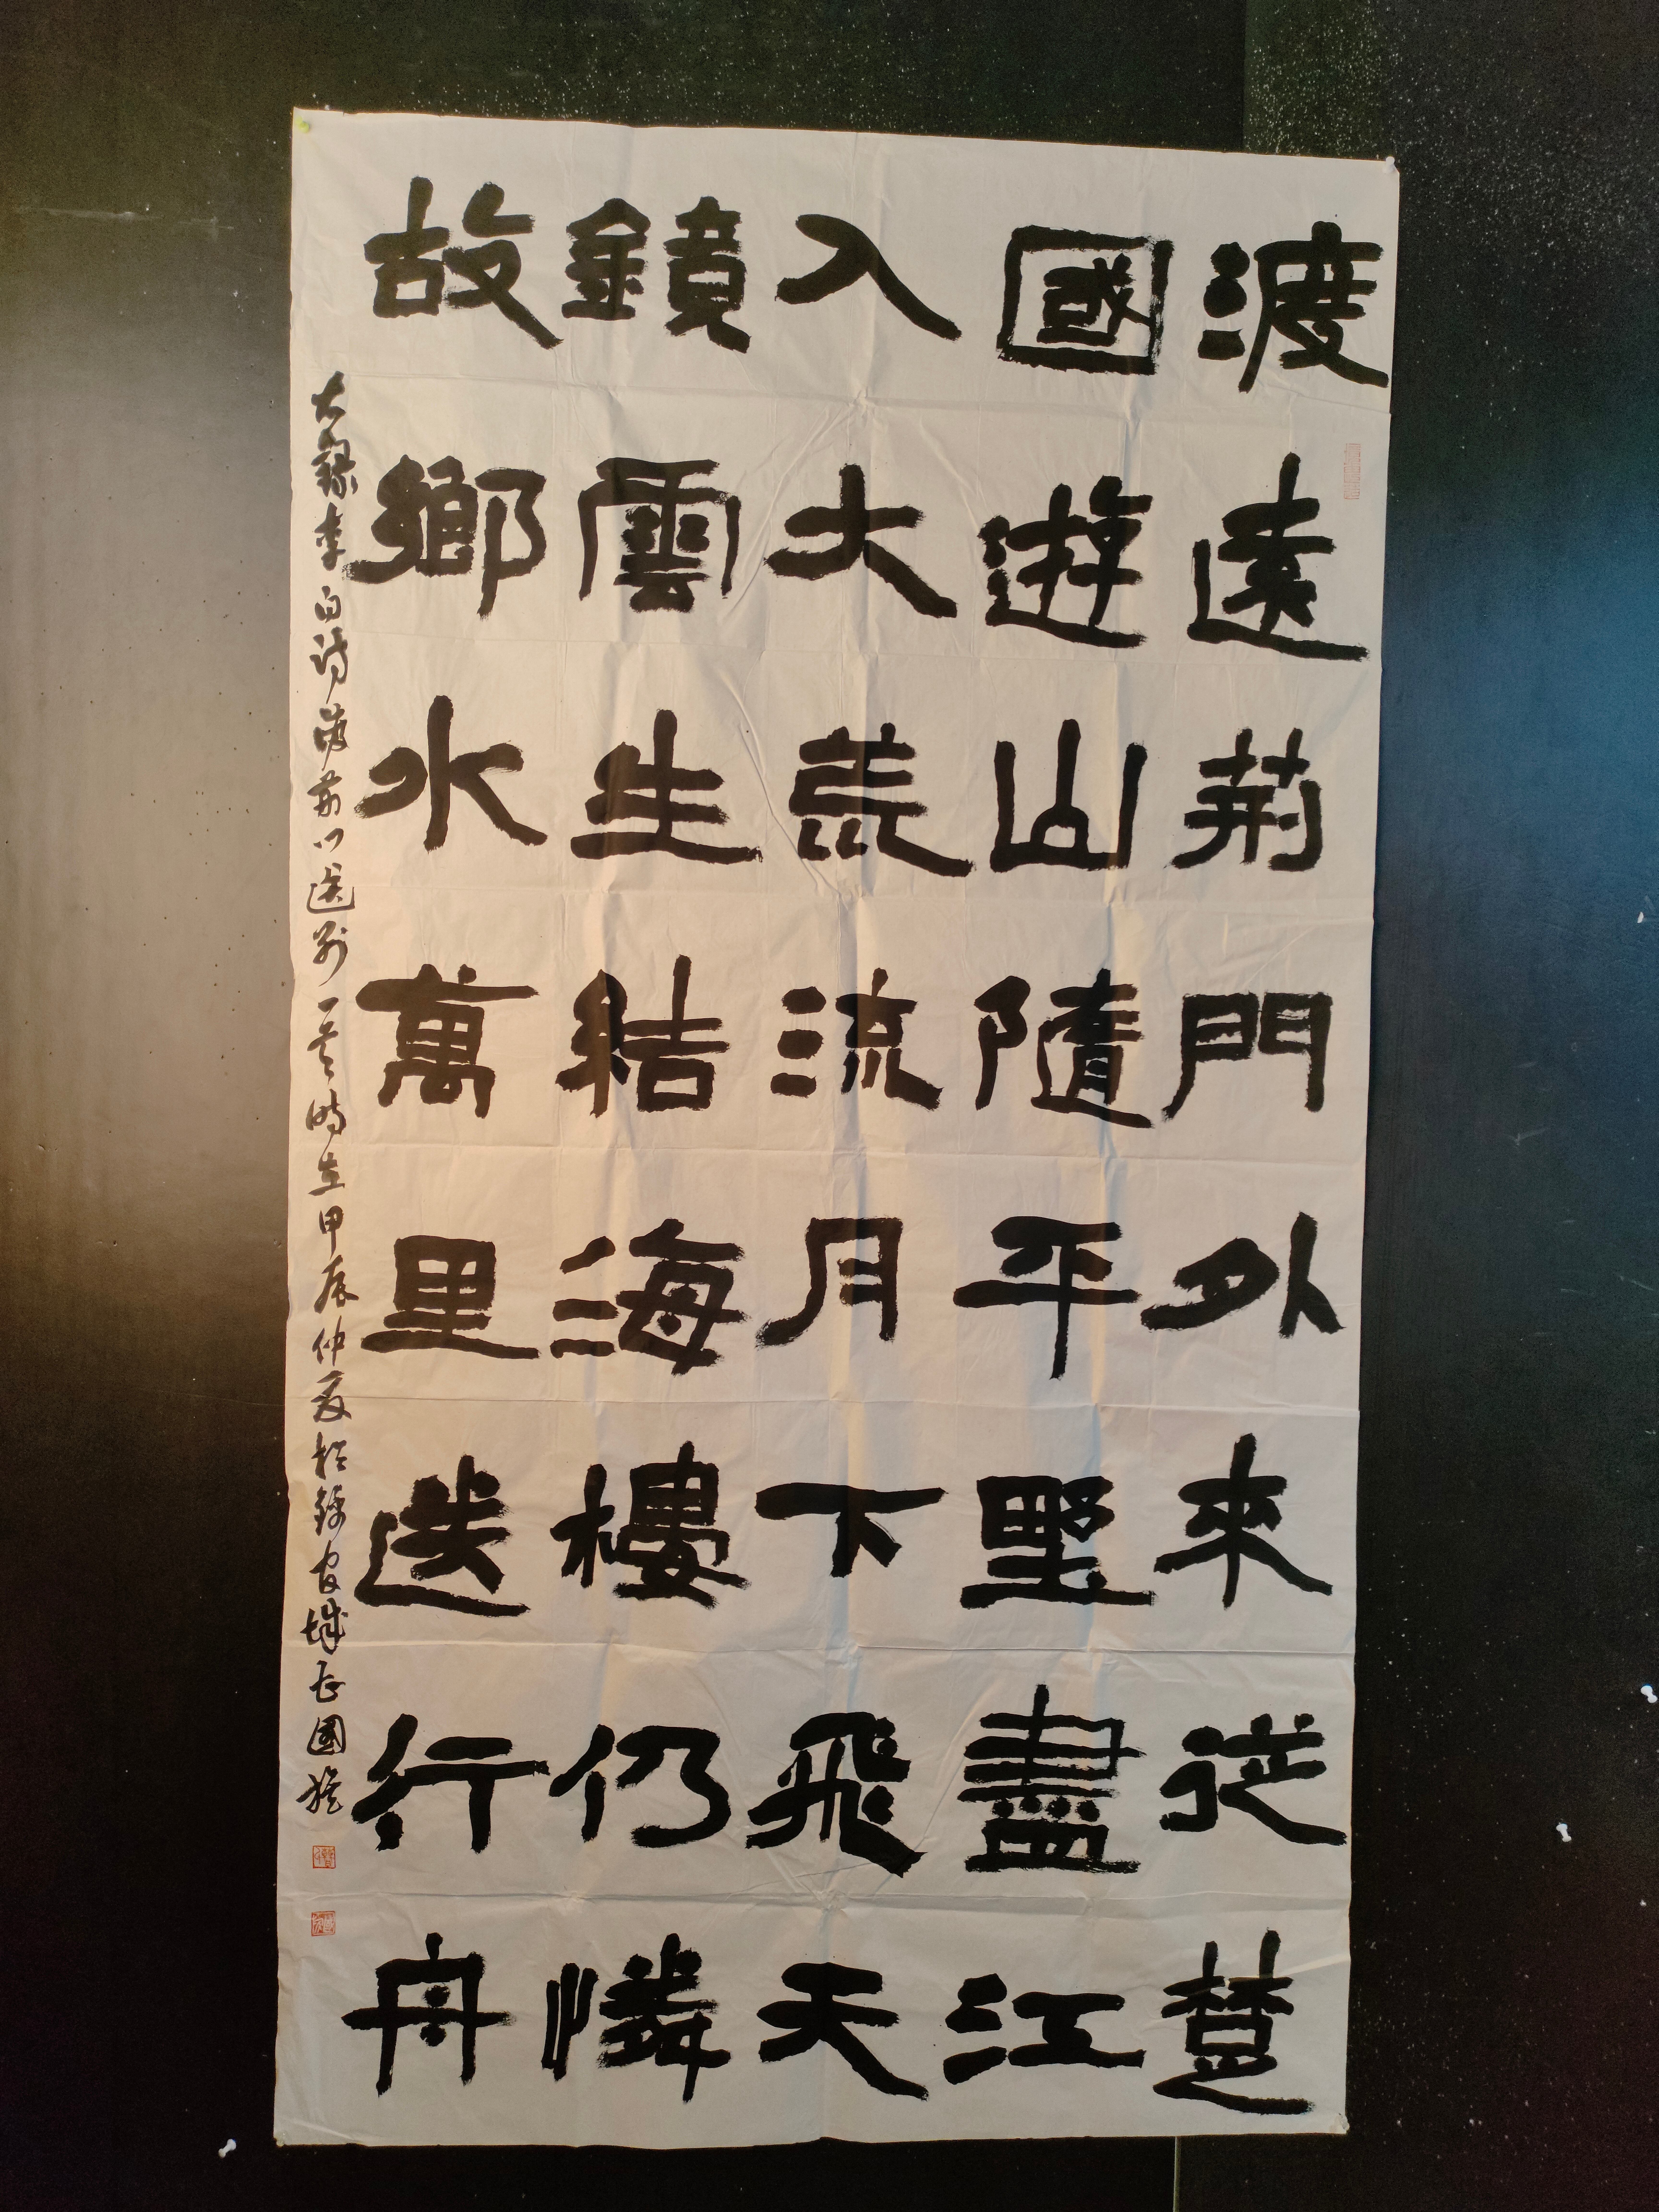 渡遠荊門外來從楚
國遊山隨平野盡江
入大荒流月下飛天
鏡雲生結海樓仍憐
故鄉水萬里送行舟
錄李白詩渡荊門送別一首時在甲辰仲夏於錦官城國